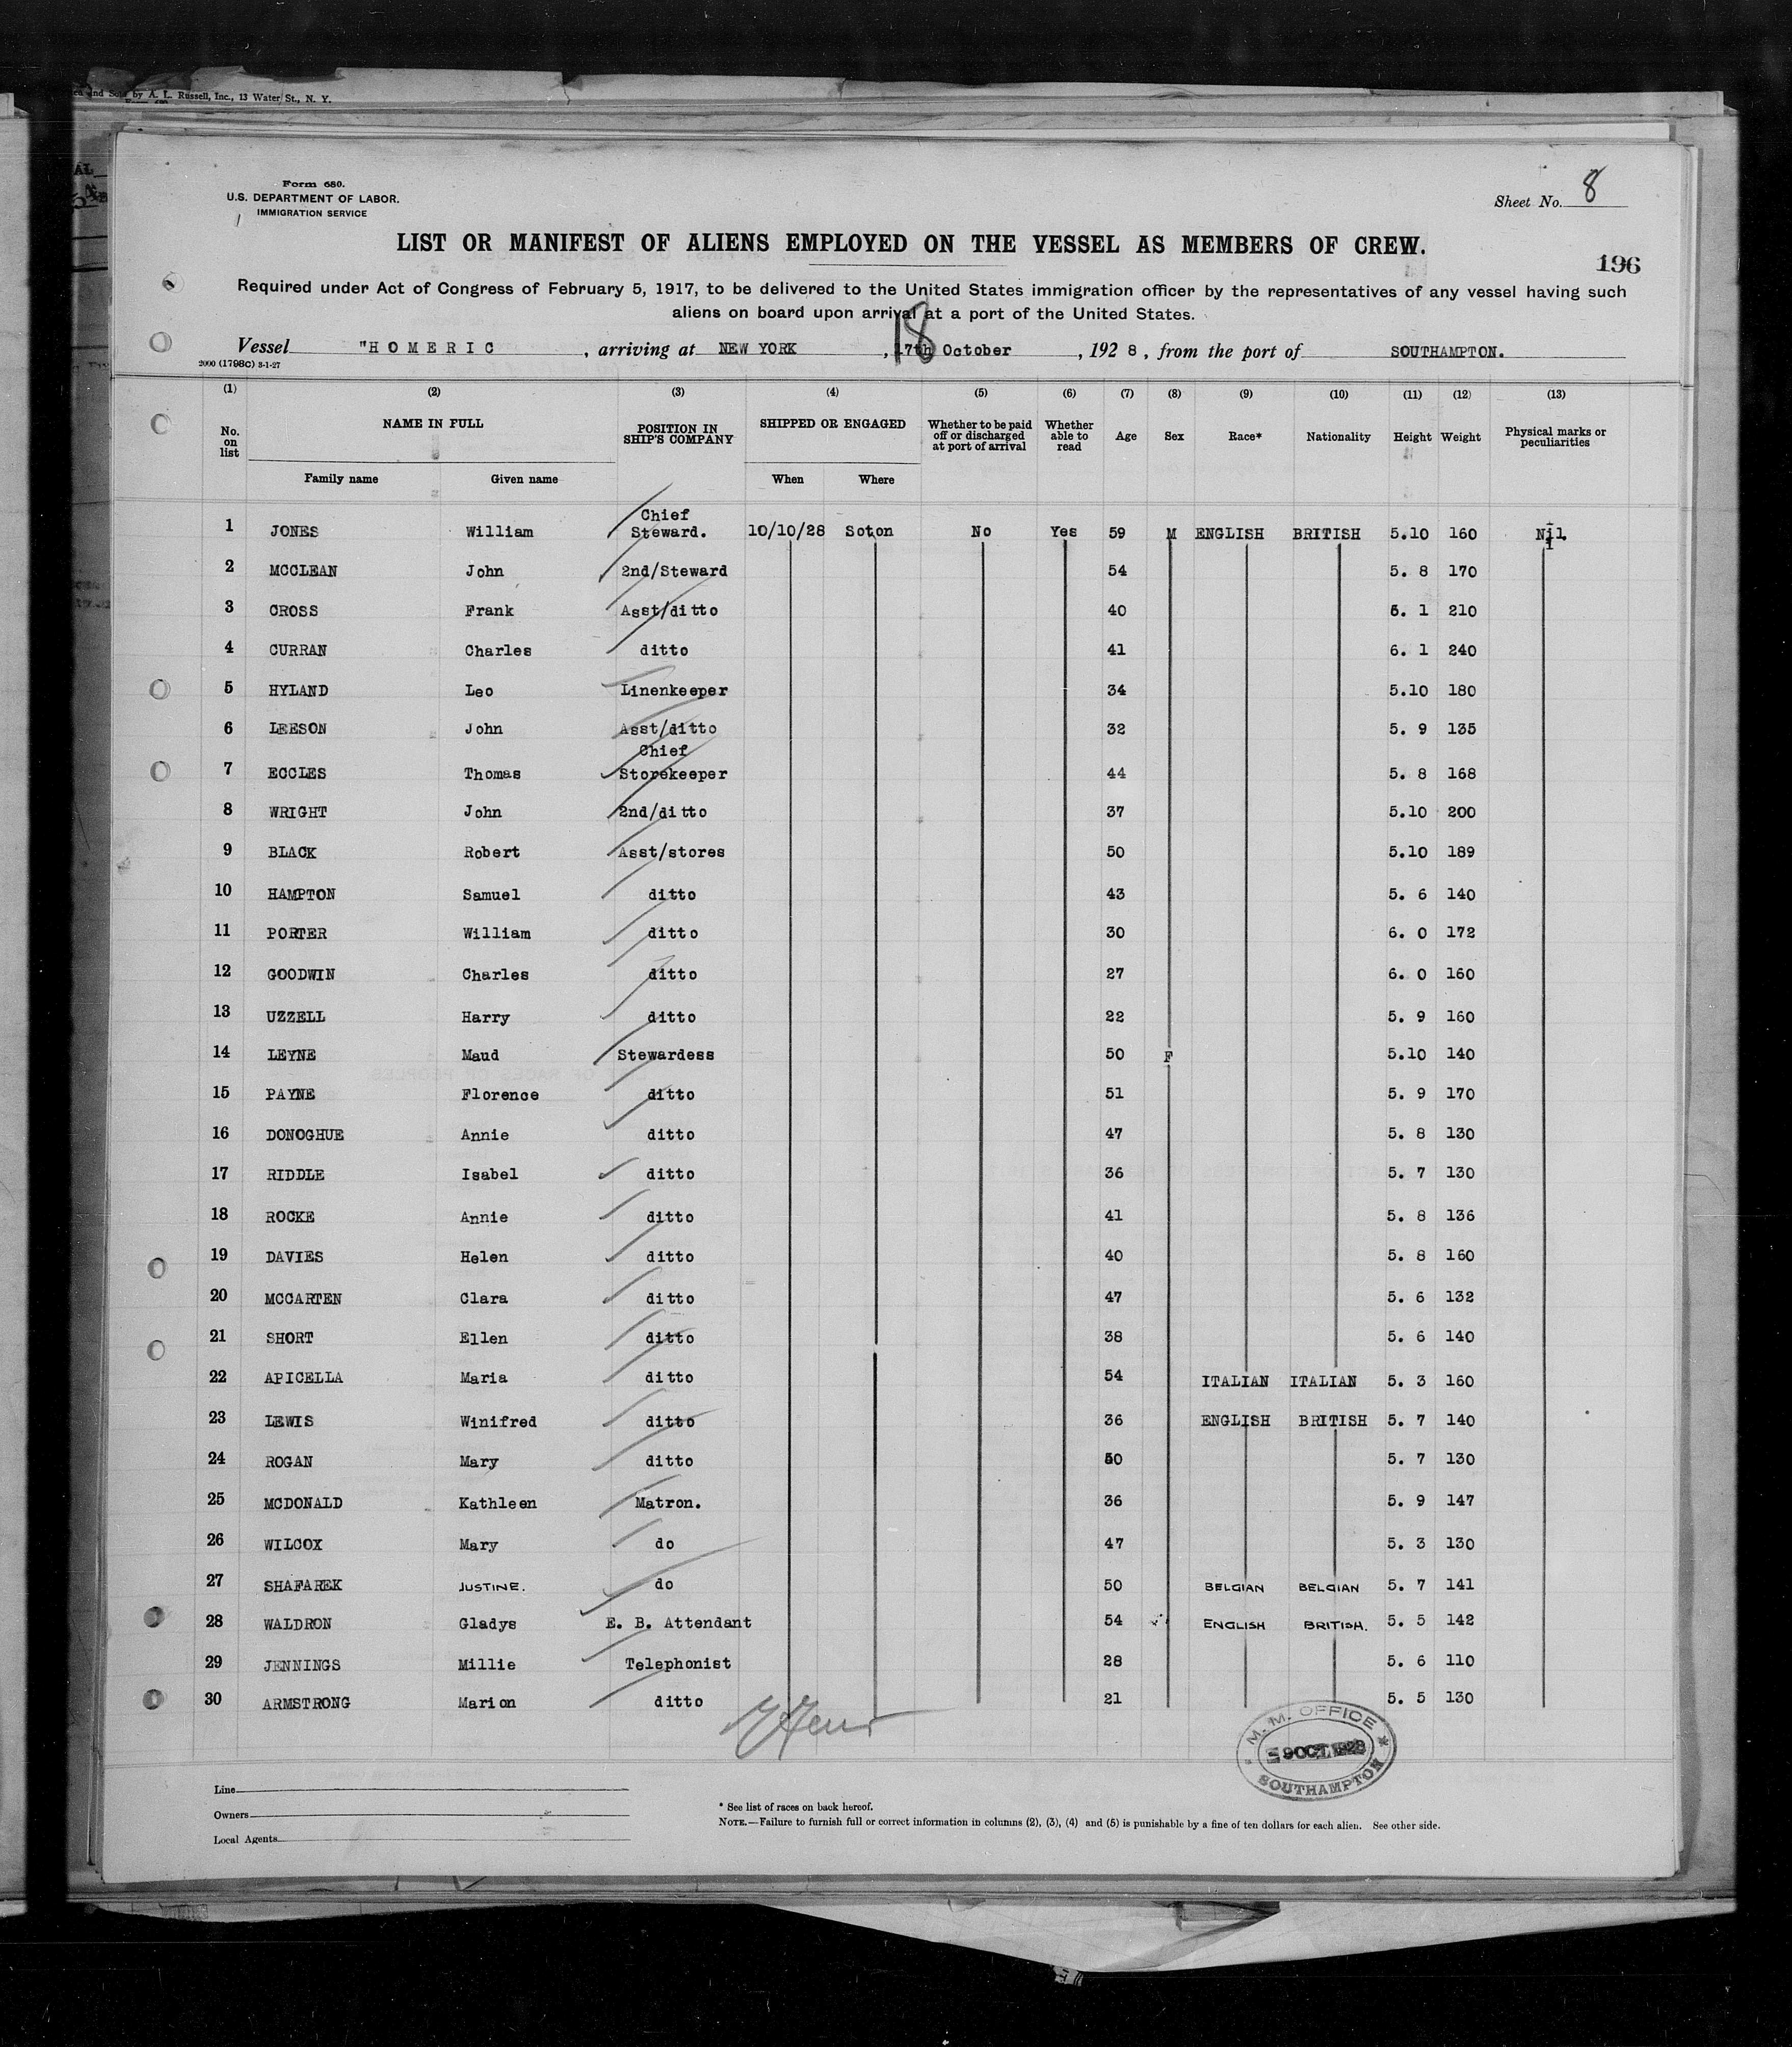 and Sold by A. L. Russell, Inc., 13 Water St., N. Y.
Form 680.
U.S. DEPARTMENT OF LABOR.
IMMIGRATION SERVICE
Sheet No. 8
LIST OR MANIFEST OF ALIENS EMPLOYED ON THE VESSEL AS MEMBERS OF CREW.
196
Required under Act of Congress of February 5, 1917, to be delivered to the United States immigration officer by the representatives of any vessel having such
aliens on board upon arrival at a port of the United States.
18
Vessel "HOMERIC , arriving at NEW YORK , 17th October , 1928, from the port of SOUTHAMPTON.
2000 (1798c) 3-1-27
(1) (2) (3) (4) (5) (6) (7) (8) (9) (10) (11) (12) (13)
No. on list NAME IN FULL POSITION IN SHIP'S COMPANY SHIPPED OR ENGAGED Whether to be paid off or discharged at port of arrival Whether able to read Age Sex Race* Nationality Height Weight Physical marks or peculiarities
Family name Given name When Where
1 JONES William Chief Steward. 10/10/28 Soton No Yes 59 M ENGLISH BRITISH 5.10 160 Nil.
2 MCCLEAN John 2nd/Steward 54 5. 8 170
3 CROSS Frank Asst/ditto 40 6. 1 210
4 CURRAN Charles ditto 41 6. 1 240
5 HYLAND Leo Linenkeeper 34 5.10 180
6 LEESON John Asst/ditto 32 5. 9 135
7 ECCLES Thomas Chief Storekeeper 44 5. 8 168
8 WRIGHT John 2nd/ditto 37 5.10 200
9 BLACK Robert Asst/stores 50 5.10 189
10 HAMPTON Samuel ditto 43 5. 6 140
11 PORTER William ditto 30 6. 0 172
12 GOODWIN Charles ditto 27 6. 0 160
13 UZZELL Harry ditto 22 5. 9 160
14 LEYNE Maud Stewardess 50 F 5.10 140
15 PAYNE Florence ditto 51 5. 9 170
16 DONOGHUE Annie ditto 47 5. 8 130
17 RIDDLE Isabel ditto 36 5. 7 130
18 ROCKE Annie ditto 41 5. 8 136
19 DAVIES Helen ditto 40 5. 8 160
20 MCCARTEN Clara ditto 47 5. 6 132
21 SHORT Ellen ditto 38 5. 6 140
22 APICELLA Maria ditto 54 ITALIAN ITALIAN 5. 3 160
23 LEWIS Winifred ditto 36 ENGLISH BRITISH 5. 7 140
24 ROGAN Mary ditto 50 5. 7 130
25 MCDONALD Kathleen Matron. 36 5. 9 147
26 WILCOX Mary do 47 5. 3 130
27 SHAFAREK JUSTINE. do 50 BELGIAN BELGIAN 5. 7 141
28 WALDRON Gladys E. B. Attendant 54 ENGLISH BRITISH. 5. 5 142
29 JENNINGS Millie Telephonist 28 5. 6 110
30 ARMSTRONG Marion ditto 21 5. 5 130
M. M. OFFICE
9 OCT 1928
SOUTHAMPTON
Line
Owners
Local Agents
* See list of races on back hereof.
NOTE.—Failure to furnish full or correct information in columns (2), (3), (4) and (5) is punishable by a fine of ten dollars for each alien. See other side.